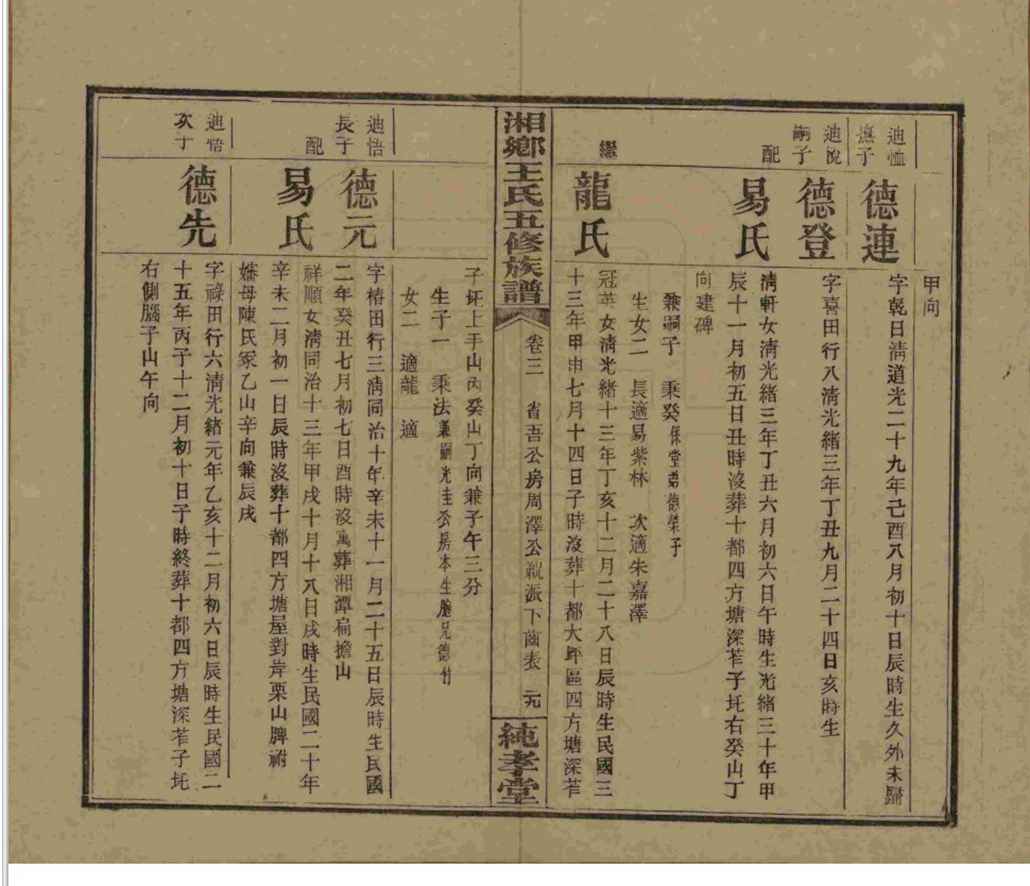 甲向
迪恤
撫子
德連
字乾日清道光二十九年己酉八月初十日辰時生久外未歸
迪悅
嗣子
德登
字喜田行八清光緒三年丁丑九月二十四日亥時生
配
易氏
清軒女清光緒三年丁丑六月初六日午時生光緒三十年甲
辰十一月初五日丑時沒葬十都四方塘深苲子圫右癸山丁
向建碑
兼嗣子 乘癸保堂弟德榮子
生女二 長適易紫林 次適朱嘉澤
繼
龍氏
冠英女清光緒十三年丁亥十二月二十八日辰時生民國三
十三年甲申七月十四日子時沒葬十都大坪區四方塘深苲
湘鄉王氏五修族譜
卷三 省吾公房周澤公派下齒表 元
純孝堂
子圫上手山內癸山丁向兼子午三分
生子一 乘法兼嗣光圭公房本生胞兄德竹
女二 適龍 適
迪悟
長子
德元
字椿田行三清同治十年辛未十一月二十五日辰時生民國
二年癸丑七月初七日酉時沒葬湘潭扁擔山
配
易氏
祥順女清同治十三年甲戌十月十八日戌時生民國二十年
辛未二月初一日辰時沒葬十都四方塘屋對岸栗山牌祔
嬸母陳氏冢乙山辛向兼辰戌
迪悟
次子
德先
字祿田行六清光緒元年乙亥十二月初六日辰時生民國二
十五年丙子十二月初十日子時終葬十都四方塘深苲子圫
右側腦子山午向